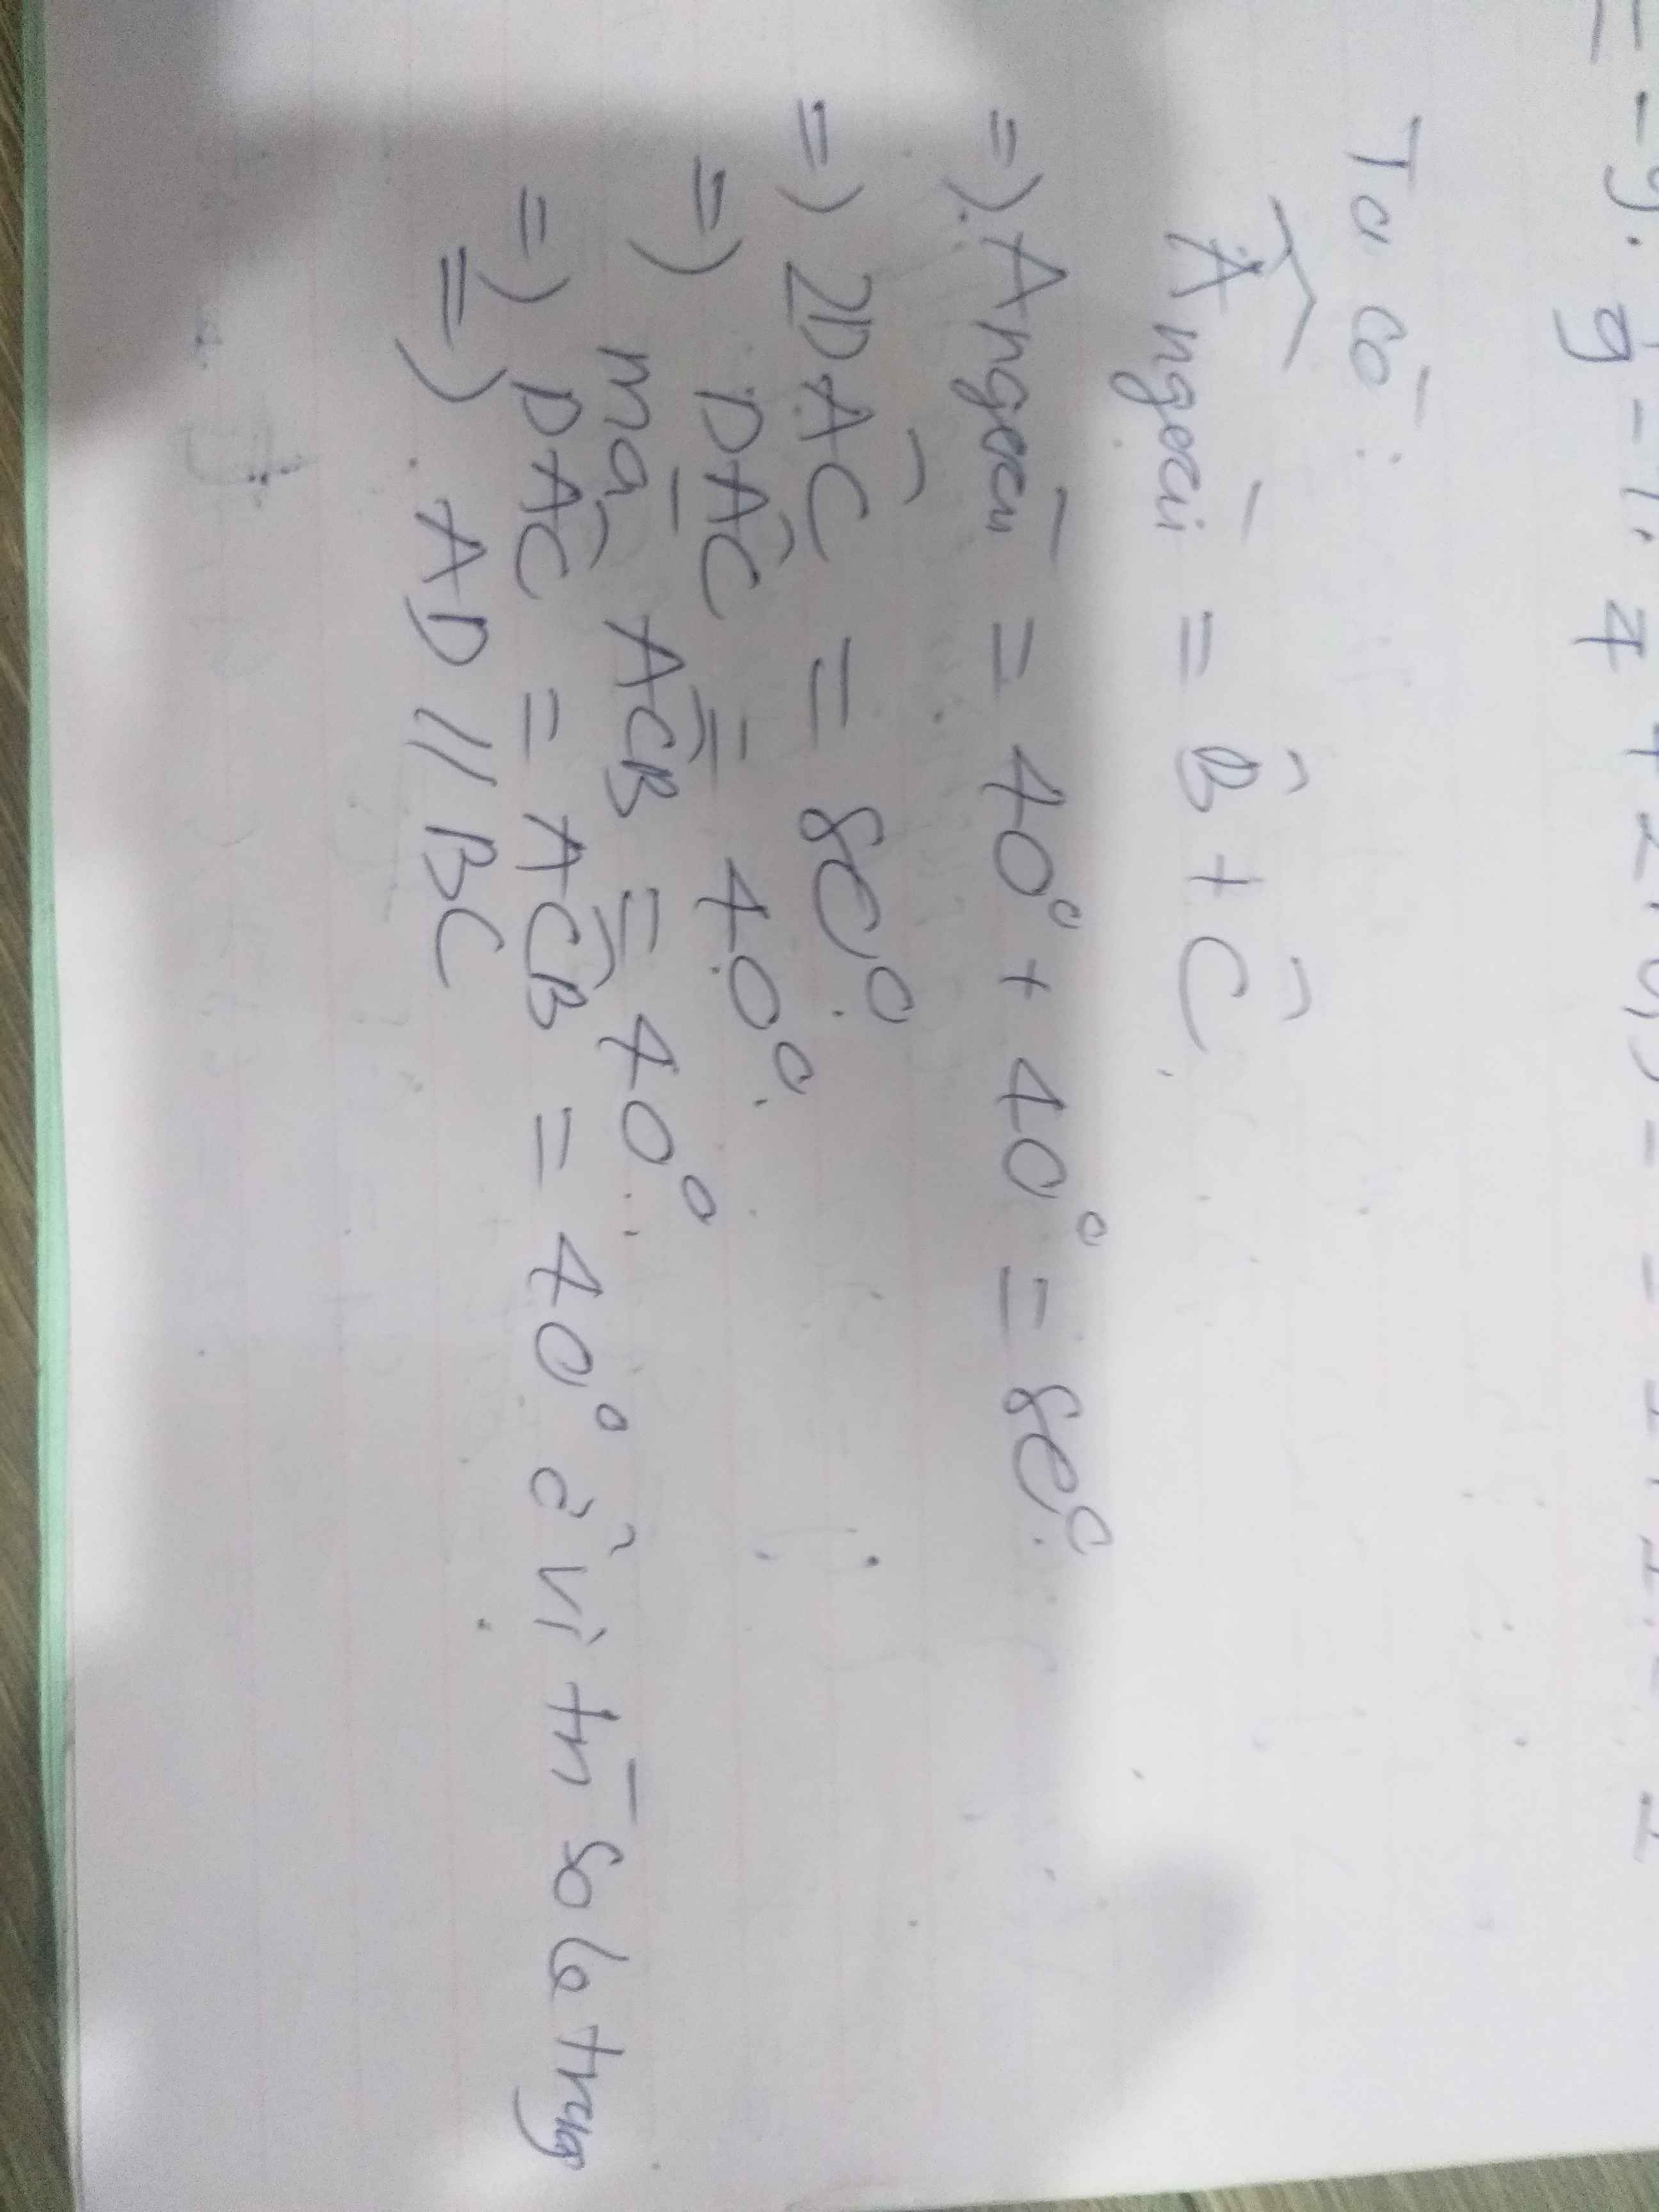 Ta có:
Â ngoài = B̂ + Ĉ
=) A ngoài = 40° + 40° = 80°
=) 2DÂC = 80°
=) DÂC = 40°
mà AĈB = 40°
=) DÂC = AĈB = 40° ở vị trí so le trong
=) AD // BC